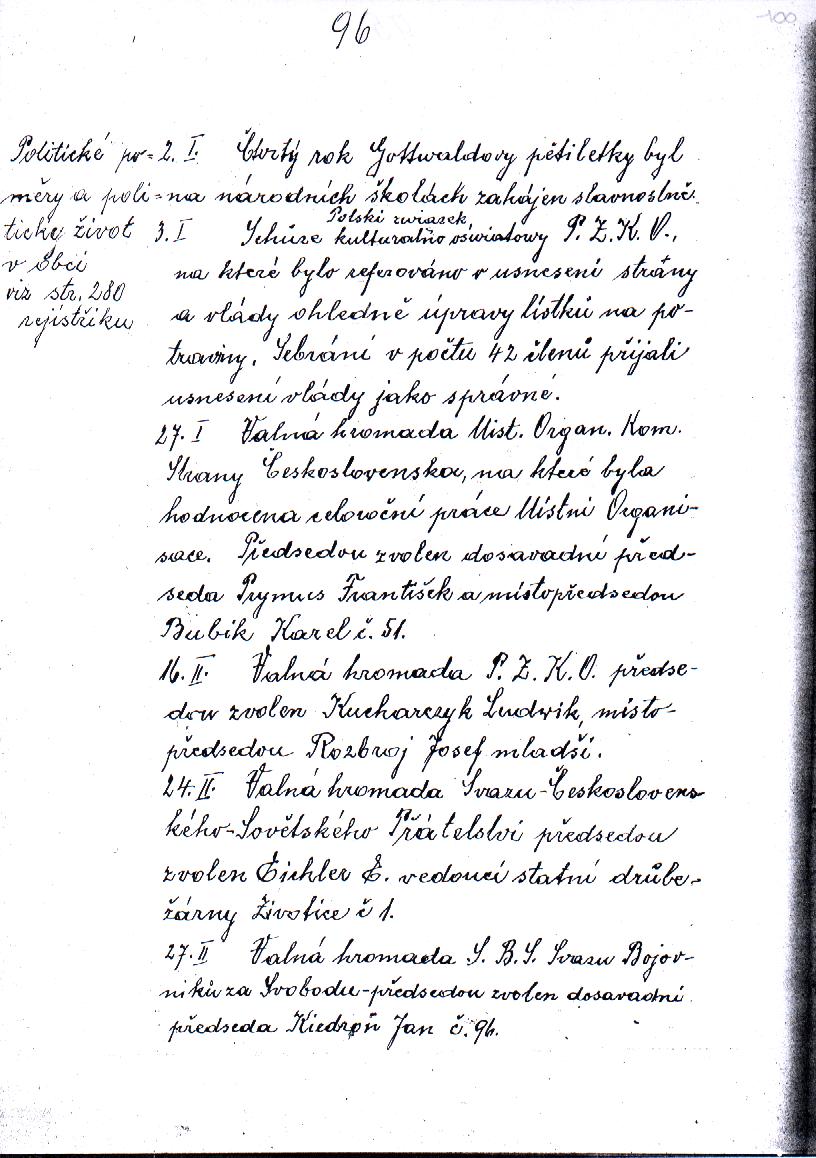 96
100
Politické po=
měry a poli=
tický život
v obci
viz str. 280
rejstříku
2. I. Čtvrtý rok Gottwaldovy pětiletky byl
na národních školách zahájen slavnostně.
Polski zwiazek
3. I Schůze kulturalňo oświatowy P. Z. K. O.,
na které bylo referováno o usnesení strany
a vlády ohledně úpravy lístků na po-
traviny. Sebráni v počtu 42 členů přijali
usnesení vlády jako správné.
27. I Valná hromada Míst. Organ. Kom.
Strany Československa, na které byla
hodnocena celoroční práce Místní Organi-
sace. Předsedou zvolen dosavadní před-
seda Prymus František a místopředsedou
Bubik Karel č. 51.
16. II. Valná hromada P. Z. K. O. předse-
dou zvolen Kucharczyk Ludwik, místo-
předsedou Rozbroj Josef mladší.
24. II. Valná hromada Svazu-Českosloven
kého-Sovětského Přátelství předsedou
zvolen Eichler E. vedoucí statní drůbe-
žárny Životice č 1.
27. II Valná hromada S. B. S. Svazu Bojov-
níků za Svobodu-předsedou zvolen dosavadní
předseda Kiedroň Jan č. 96.